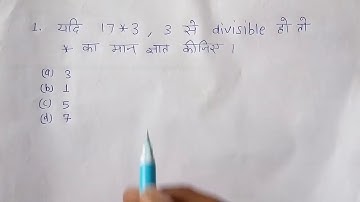 1. यदि 17*3 , 3 से divisible हो तो
* का मान ज्ञात कीजिए ।
(a) 3
(b) 1
(c) 5
(d) 7